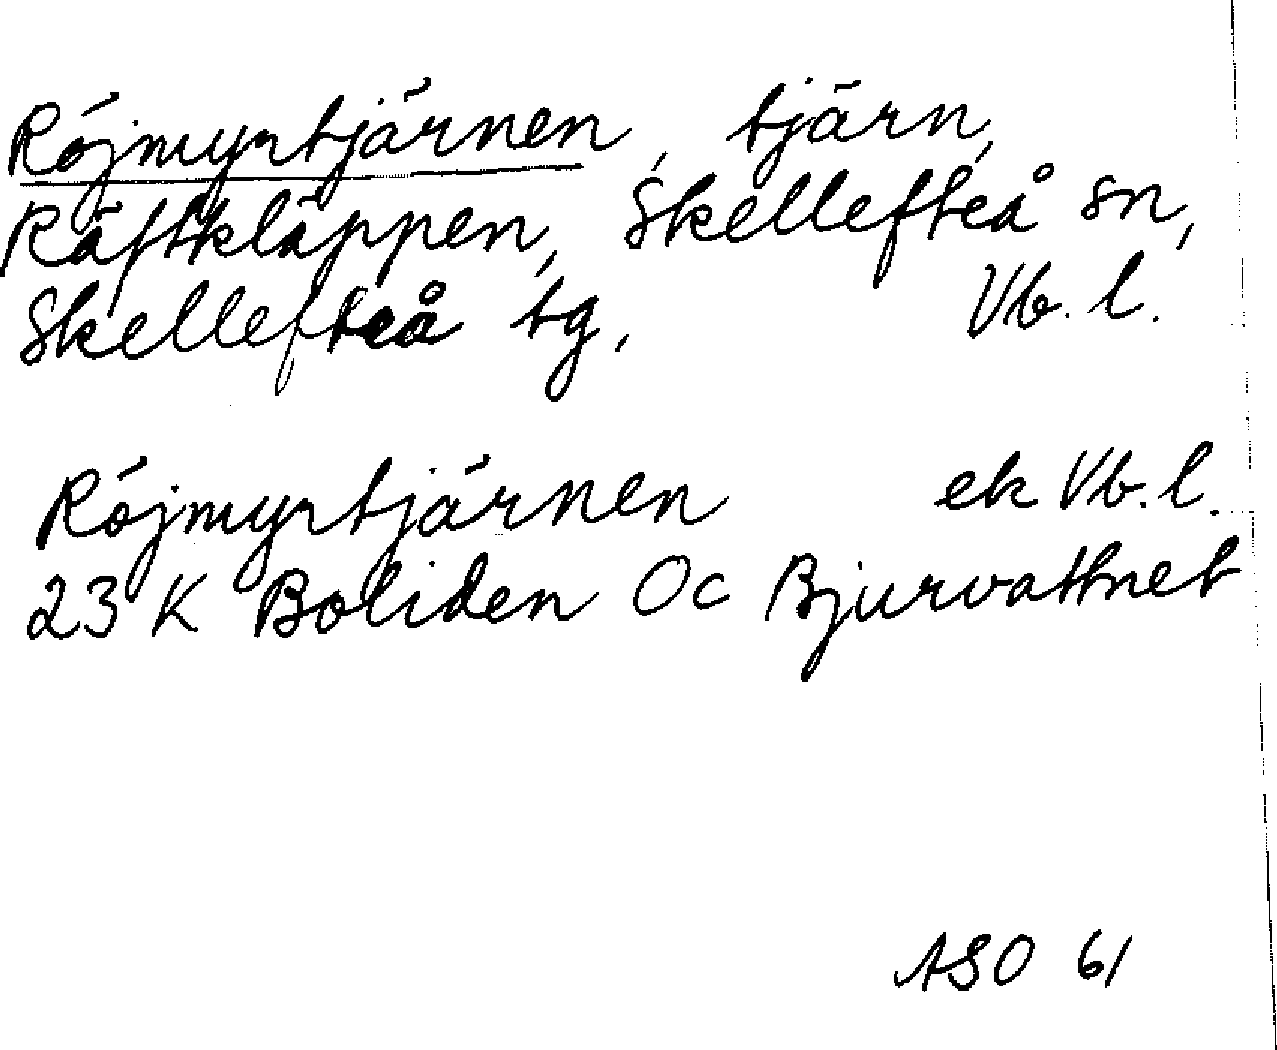 Röjmyrtjärnen, tjärn,
Räftkläppen, Skellefteå sn,
Skellefteå tg, Vb. l.
Röjmyrtjärnen ek Vb. l.
23 K Boliden Oc Bjurvattnet
ASO 61